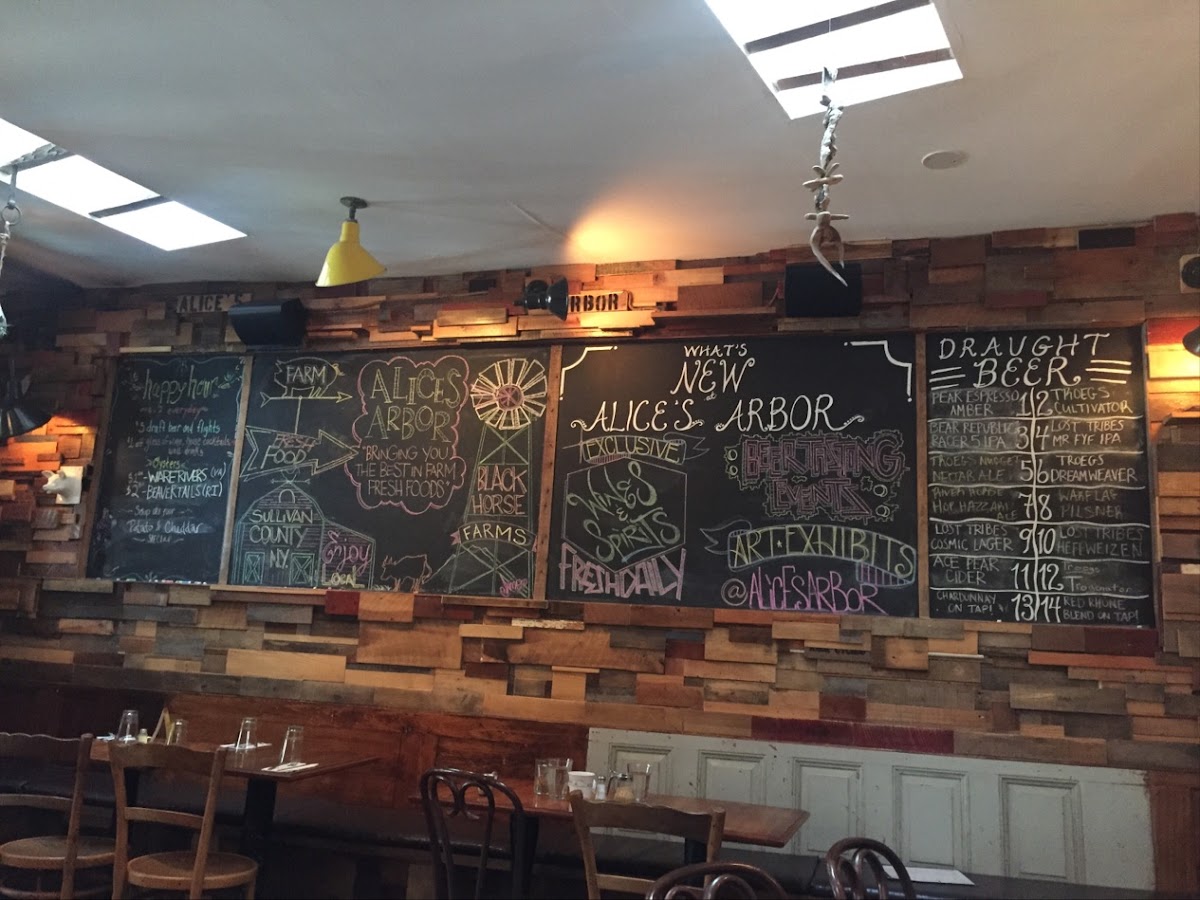 ALICE'S ARBOR
happy hour
everyday
draft beer and flights
glass of wine, house cocktails
and drafts
Oysters
WARE RIVERS (VA)
BEAVERTAILS (RI)
Soup du jour
Potato & Cheddar
FARM
FRESH
FOOD
ALICE'S
ARBOR
"BRINGING YOU
THE BEST IN FARM
FRESH FOODS"
SULLIVAN
COUNTY
N.Y.
ENJOY
LOCAL
BLACK
HORSE
FARMS
WHAT'S
NEW
at
ALICE'S ARBOR
EXCLUSIVE
WINES
&
SPIRITS
FRESH DAILY
BEER TASTING
EVENTS
ART EXHIBITS
@ALICESARBOR
DRAUGHT
BEER
PEAK ESPRESSO
AMBER
1/2
TROEG'S
CULTIVATOR
BEAR REPUBLIC
RACER 5 IPA
3/4
LOST TRIBES
MR FYF IPA
TROEGS NUGGET
NECTAR ALE
5/6
TROEGS
DREAMWEAVER
RIVER HORSE
HOP HAZZARD
7/8
PILSNER
LOST TRIBES
COSMIC LAGER
9/10
LOST TRIBES
HEFEWEIZEN
ACE PEAR
CIDER
11/12
Troegs
CHARDONNAY
ON TAP!
13/14
RED RHONE
BLEND ON TAP!